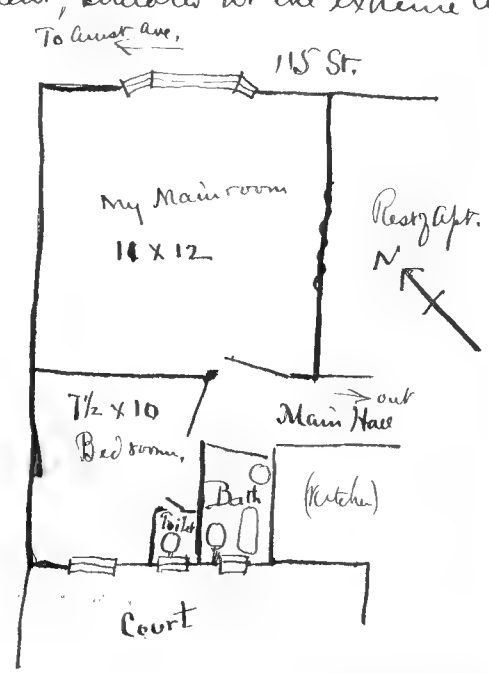 situated at the extreme
To Amst. Ave.
115 St.
My Main room
11 X 12
Rest of Apt.
N
7½ X 10
Bedroom.
out
Main Hall
Toilet
Bath
(Kitchen)
Court